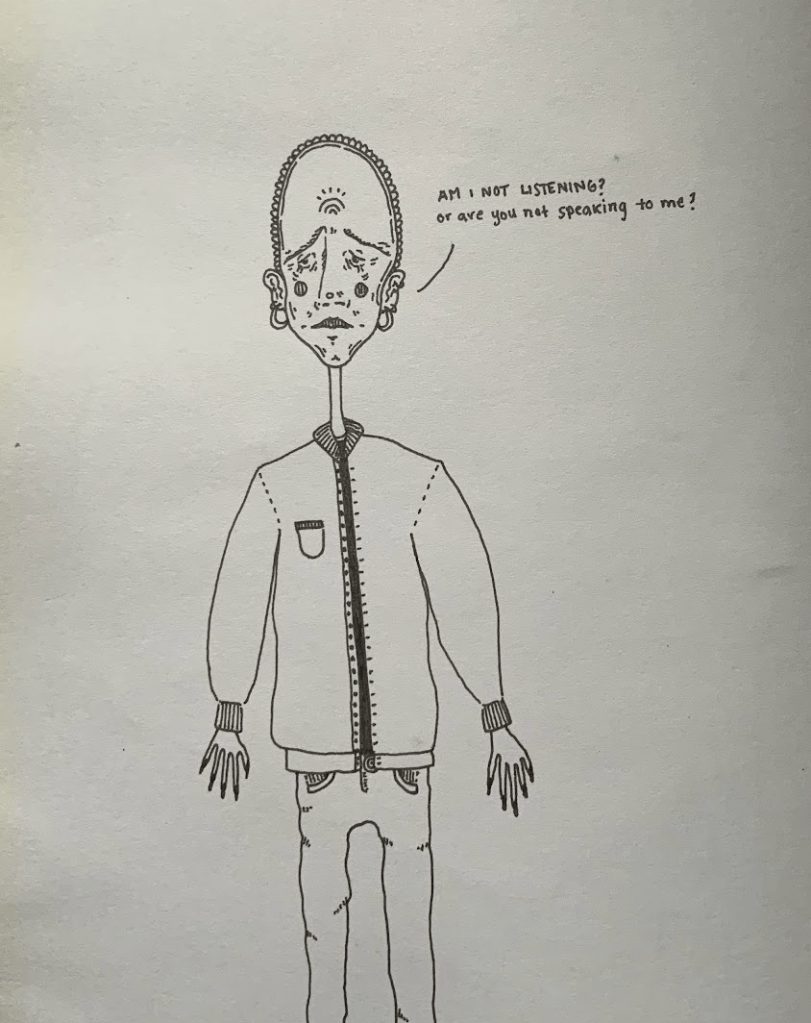 AM I NOT LISTENING?
or are you not speaking to me?